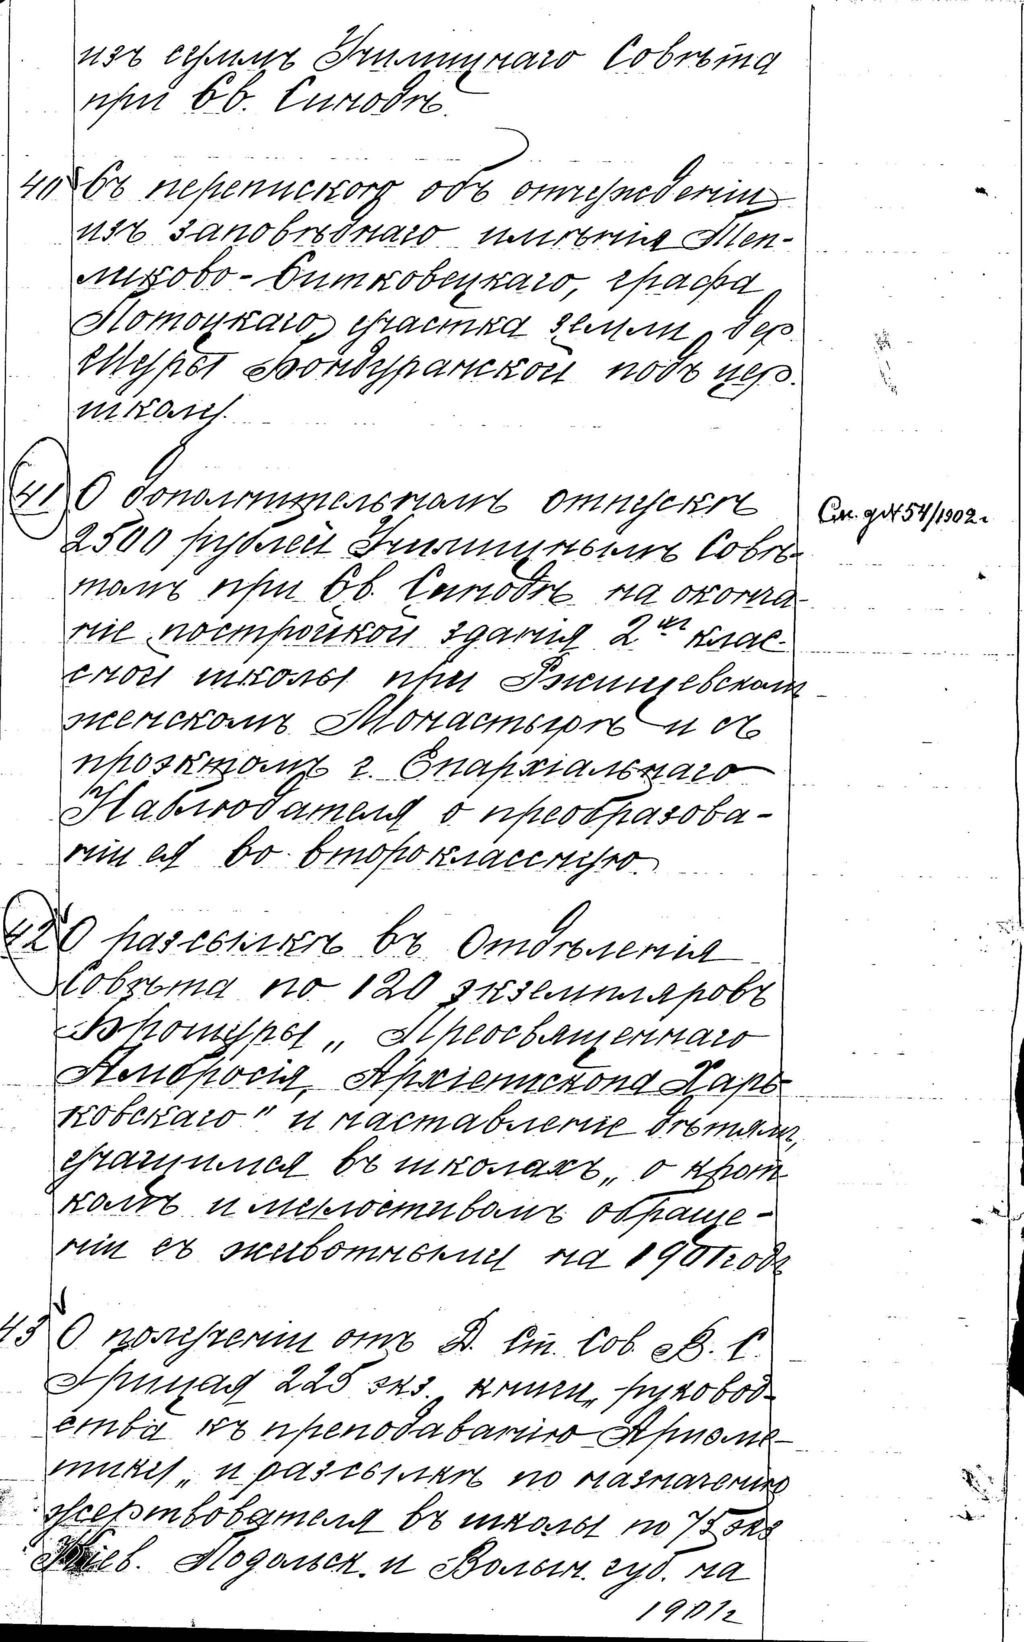 изъ суммъ Училищнаго Совѣта
при Св. Синодѣ.
40 Съ перепиской объ отчужденіи
изъ заповѣднаго имѣнія Теп-
ликово-Ситковецкаго, графа
Потоцкаго, участка земли, дер.
Щуры Бондуранской подъ цер.
школу.
41 О дополнительномъ отпускѣ
2500 рублей Училищнымъ Совѣ-
томъ при Св. Синодѣ на оконча-
ніе постройкой зданія 2хъ клас-
сной школы при Ржищевскомъ
женскомъ Монастырѣ и съ
проэктомъ г. Епархіальнаго
Наблюдателя о преобразова-
ніи ея во второклассную.
См. д. № 54/1902 г
42 О разсылкѣ въ Отдѣленія
Совѣта по 120 экземпляровъ
Брошуры „Преосвященнаго
Амвросія, Архіепископа Харь-
ковскаго" и наставленіе дѣтямъ,
учащимся въ школахъ „о крот-
комъ и милостивомъ обраще-
ніи съ животными на 1901 годъ
43 О полученіи отъ Д. Ст. Сов. В. С.
Грицая 225 экз. книги „руковод-
ства къ преподаванію Ариѳме-
тики„ и разсылкѣ по назначенію
жертвователя въ школы по 75 экз
Кіев. Подольск. и Волын. губ. на
1901 г